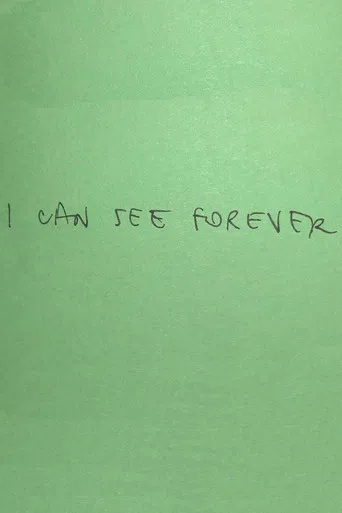 I CAN SEE FOREVER